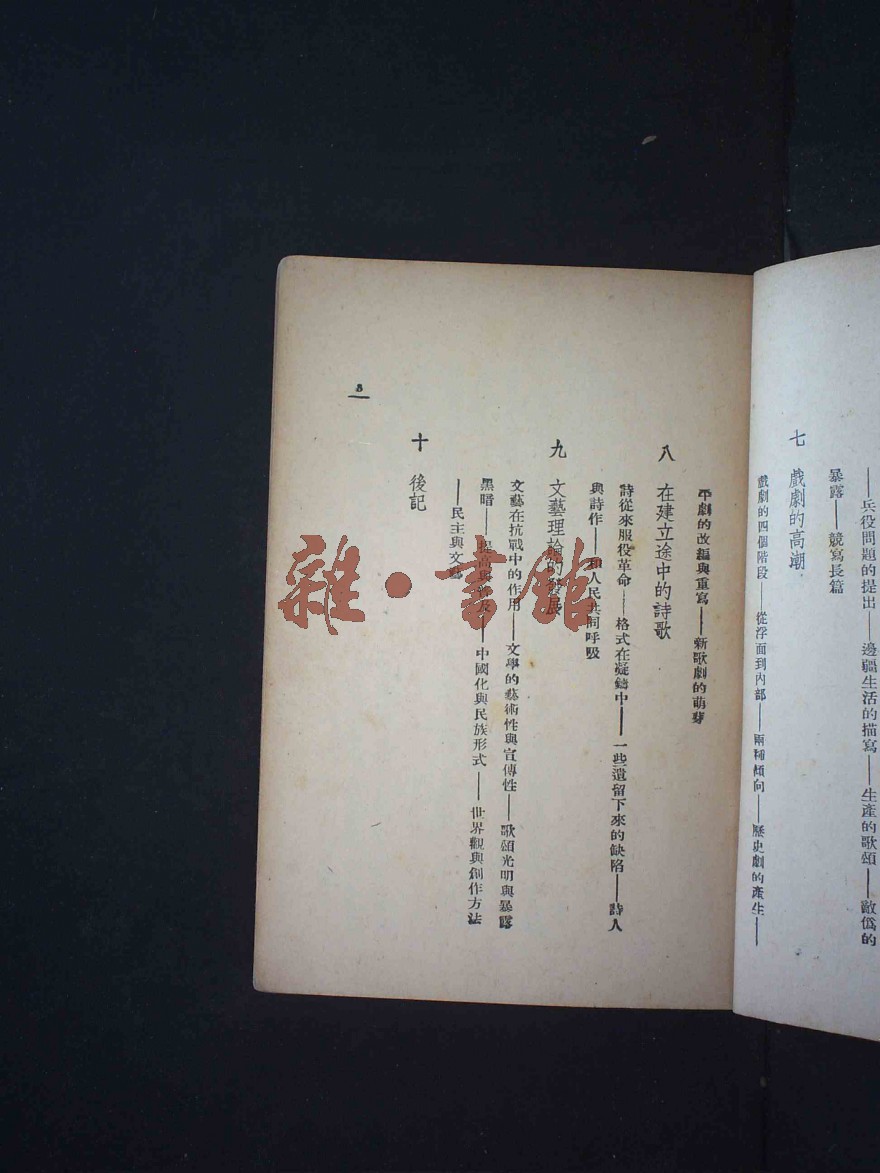 ——兵役問題的提出——邊疆生活的描寫——生產的歌頌——敵僞的
暴露——競寫長篇
七 戲劇的高潮
戲劇的四個階段——從浮面到內部——兩種傾向——歷史劇的產生——
平劇的改編與重寫——新歌劇的萌芽
八 在建立途中的詩歌
詩從來服役革命——格式在凝鑄中——一些遺留下來的缺陷——詩人
與詩作——和人民共同呼吸
九 文藝理論的發展
文藝在抗戰中的作用——文學的藝術性與宣傳性——歌頌光明與暴露
黑暗——提高與普及——中國化與民族形式——世界觀與創作方法
——民主與文藝
十 後記
3
雜·書館